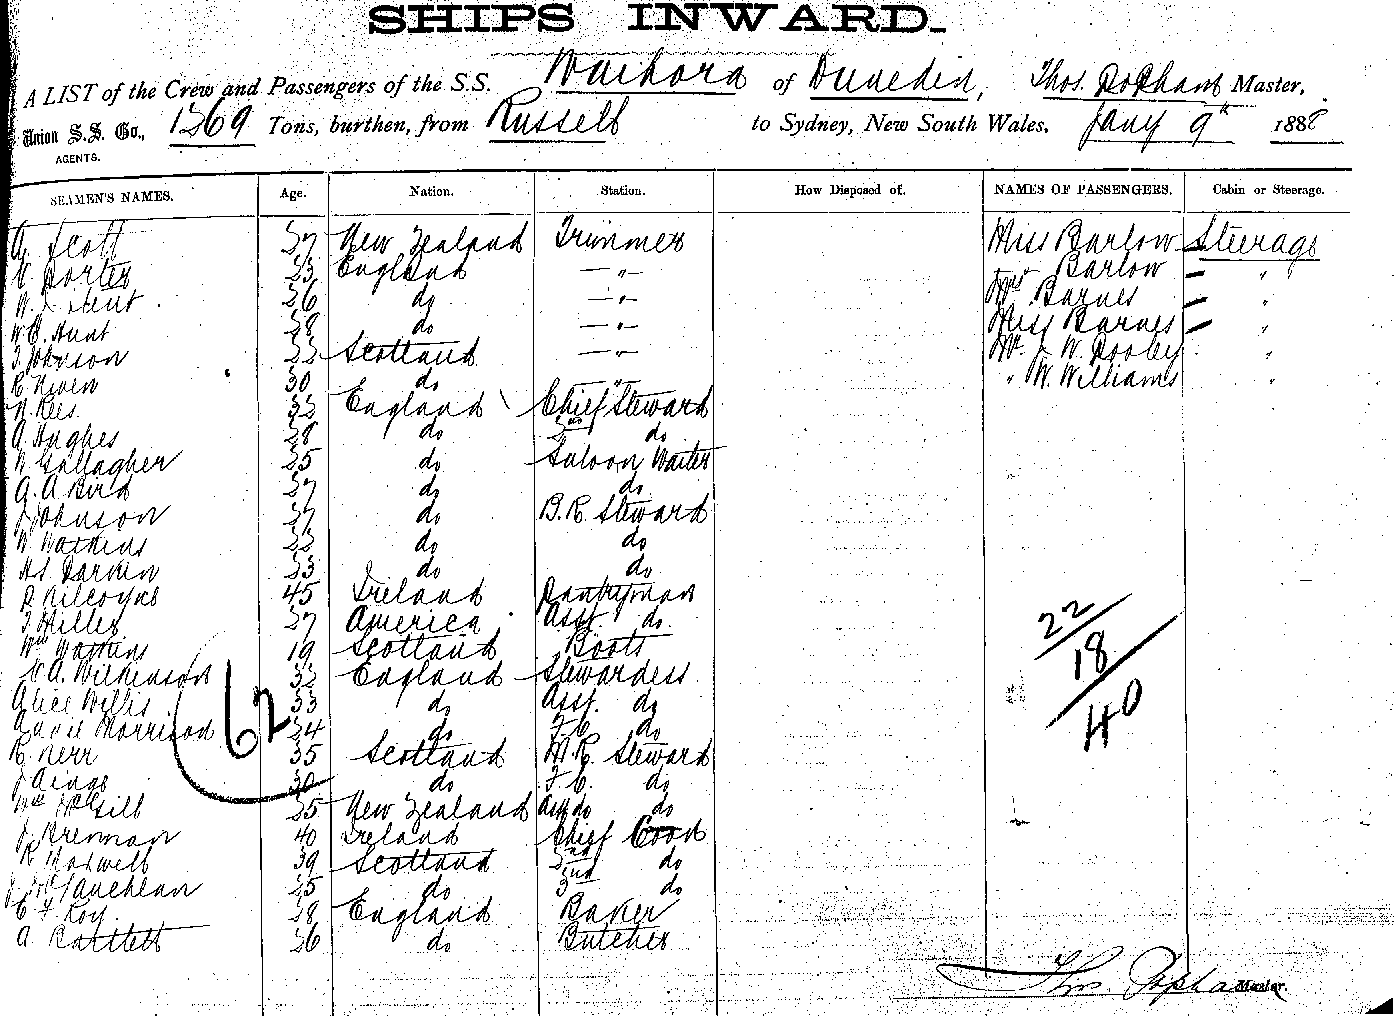 SHIPS INWARD.
A LIST of the Crew and Passengers of the S.S. Waihora of Dunedin, Thos. Popham Master,
Union S.S. Co., AGENTS. 1269 Tons, burthen, from Russell to Sydney, New South Wales, Jany 9th 1888
SEAMEN'S NAMES. Age. Nation. Station. How Disposed of. NAMES OF PASSENGERS. Cabin or Steerage.
A. Scott 27 New Zealand Trimmer Miss Barlow Steerage
Porter 23 England —"— Mrs Barlow "
W. Hunt 26 do —"— Barnes "
W. Hunt 28 do —"— Miss Barnes "
Johnson 22 Scotland —"— Mr J. W. Dooley "
R. Niven 30 do " " W. Williams "
Rees 32 England Chief Steward
A. Hughes 28 do 2nd do
Gallagher 25 do Saloon Waiter
A. A. Bird 27 do do
Johnson 27 do B.R. Steward
W. Watkins 22 do do
23 do do
Kilcoyne 45 Ireland Pantryman
Miller 27 America Asst. do
Wm Watkins 19 Scotland Boots
A. Wilkinson 32 England Stewardess
Alice Willis 33 do Asst. do
Morrison 24 do F.C. do
R. Kerr 35 Scotland M.R. Steward
30 do F.C. do
Wm McGill 25 New Zealand Asst do do
Brennan 40 Ireland Chief Cook
Maxwell 39 Scotland 2nd do
McLauchlan 25 do 3rd do
Roy 28 England Baker
A. Bartlett 26 do Butcher
62
22
18
40
Thos. Popham Master.